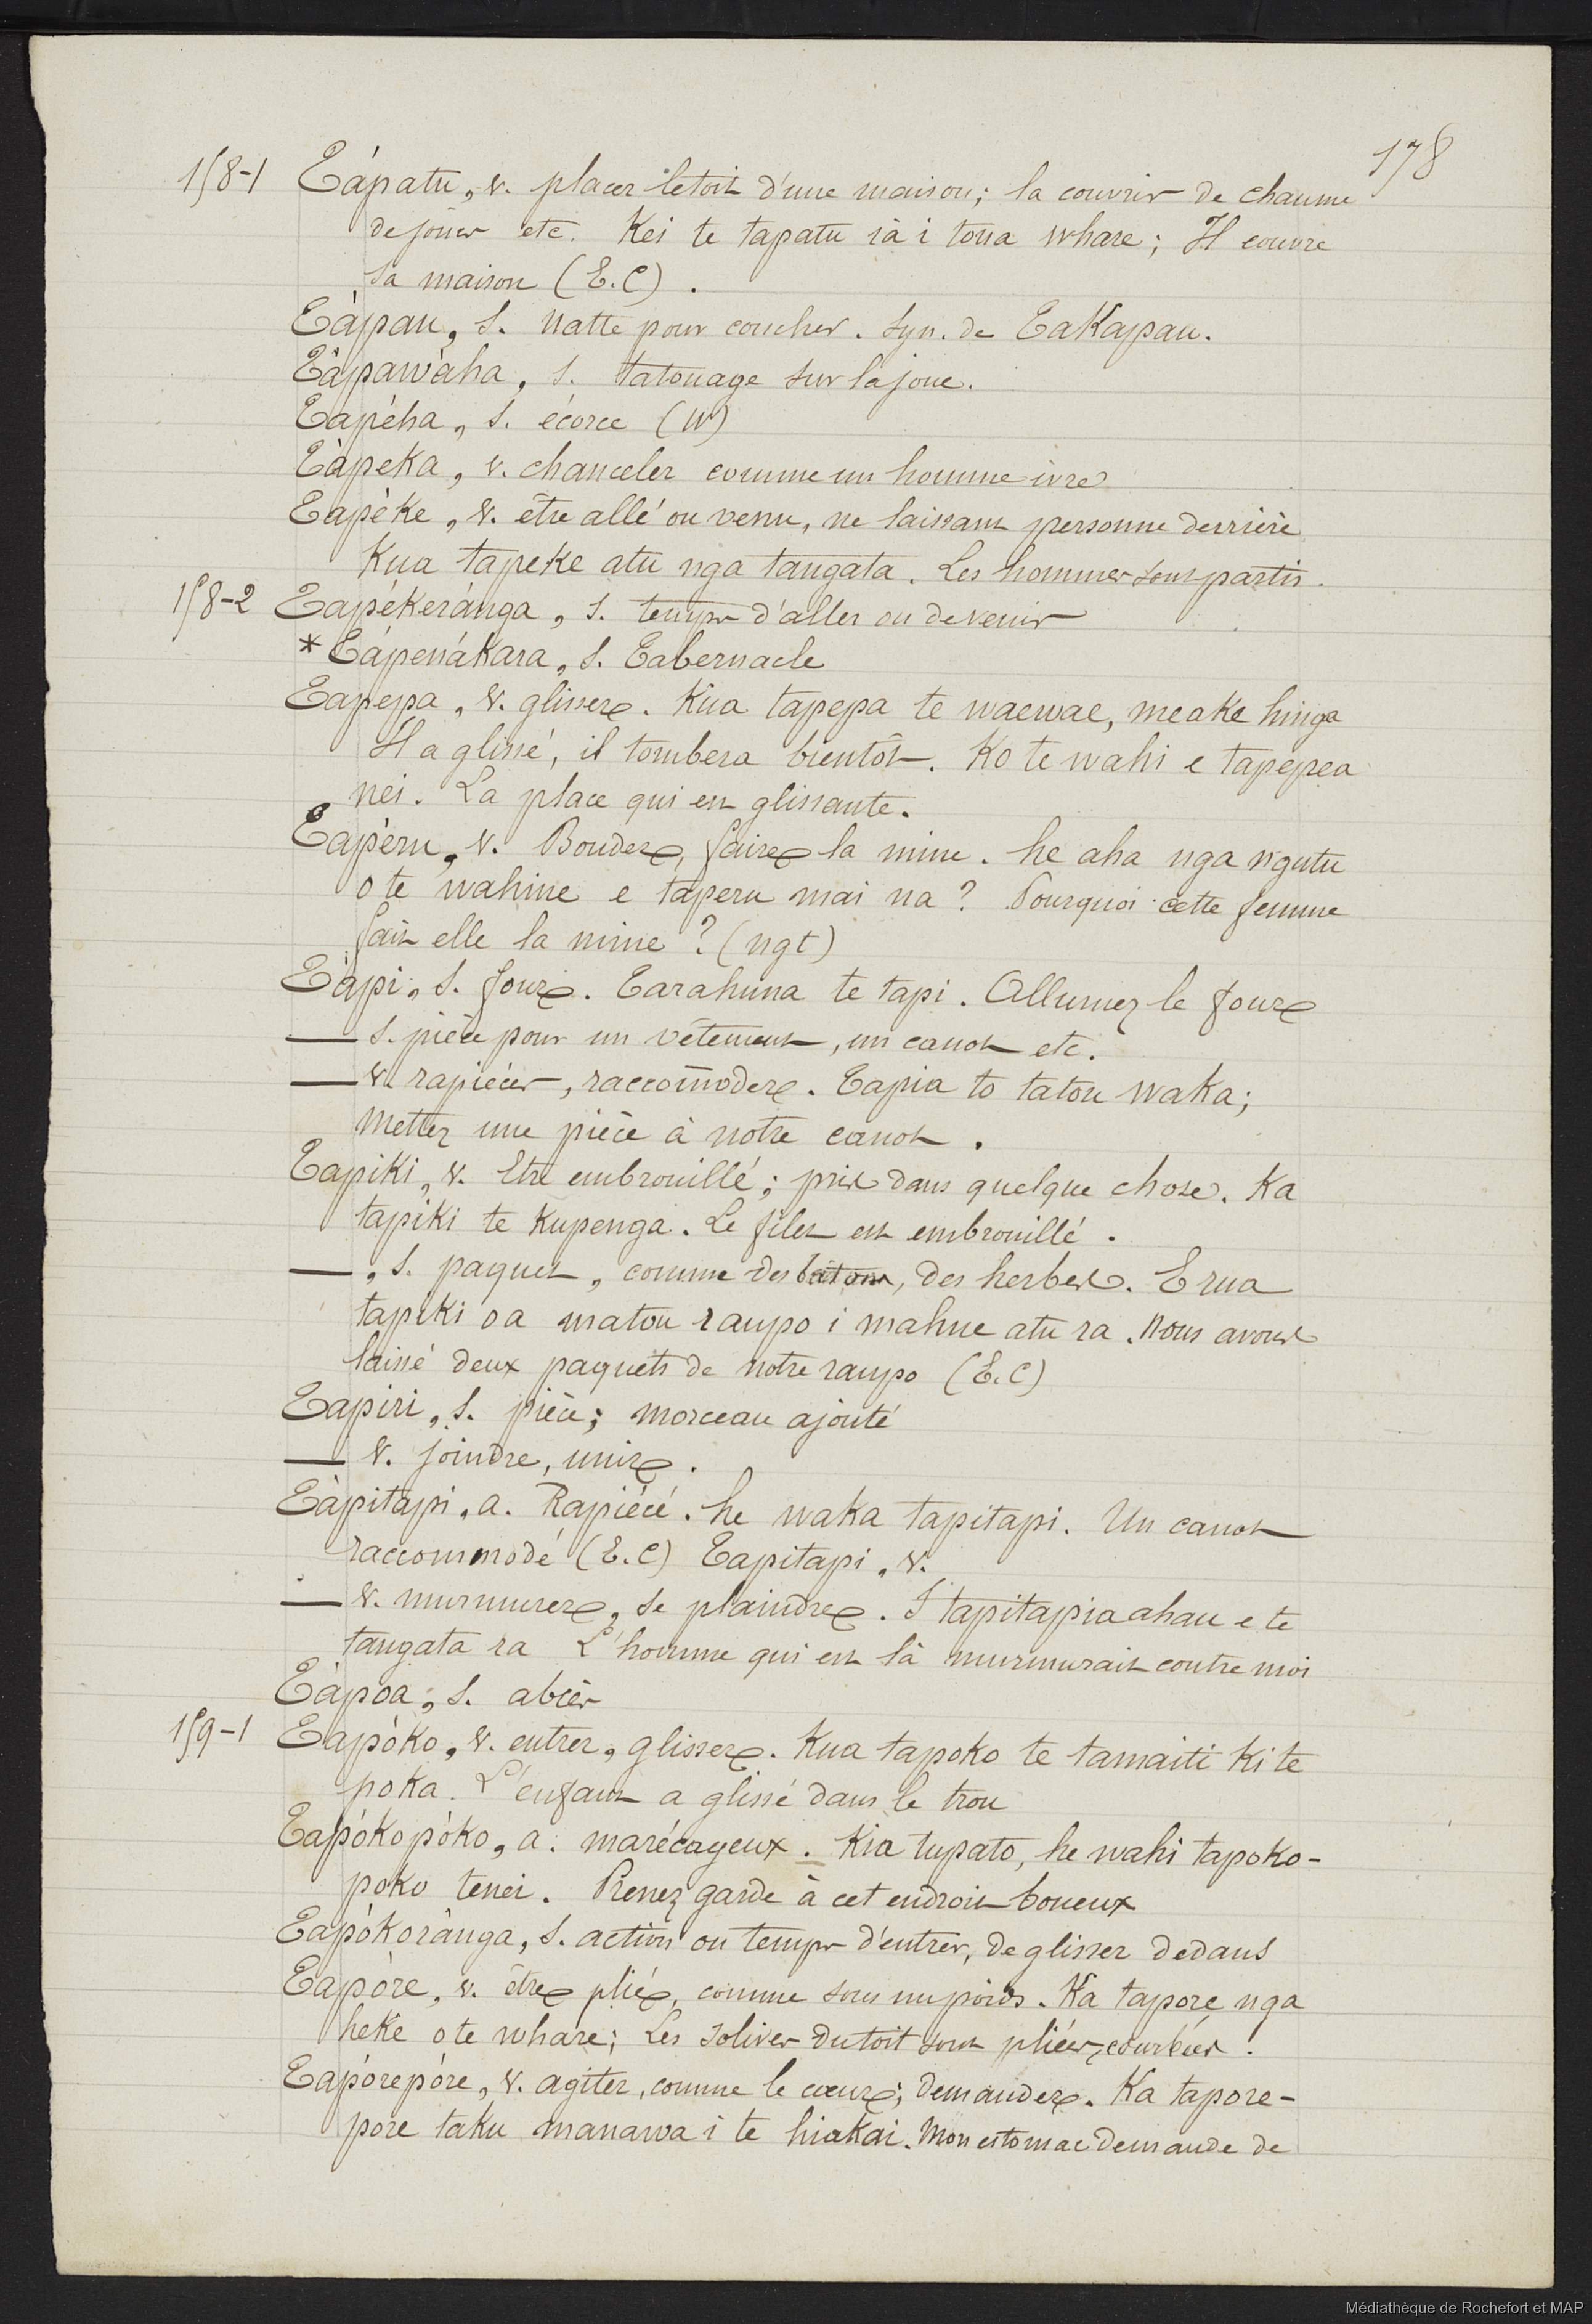 178
158-1 Tápatu, v. placer le toit d'une maison; la couvrir de chaume
de joncs etc. Kei te tapatu ia i tona whare; Il couvre
sa maison (E.C).
Tápau, s. natte pour coucher. Syn. de Takapau.
Tápawáha, s. tatouage sur la joue.
Tapéha, s. écorce (W)
Tápeka, v. chanceler comme un homme ivre
Tapéke, v. être allé ou venu, ne laissant personne derrière
Kua tapeke atu nga tangata. Les hommes sont partis.
158-2 Tapékeránga, s. temps d'aller ou de venir
* Tápenákara, s. Tabernacle
Tapepa, v. glisser. Kua tapepa te waewae, meake hinga
Il a glissé, il tombera bientôt. Ko te wahi e tapepea
nei. La place qui est glissante.
Tapéru, v. Bouder, faire la mine. he aha nga ngutu
o te wahine e taperu mai na? Pourquoi cette femme
fait elle la mine? (ngt)
Tápi, s. four. Tarahuna te tapi. Allumez le four
— s. pièce pour un vêtement, un canot etc.
— v. rapiécer, raccomoder. Tapia to tatou waka;
Mettez une pièce à notre canot.
Tapiki, v. Etre embrouillé; pris dans quelque chose. Ka
tapiki te kupenga. Le filet est embrouillé.
—, s. paquet, comme des bâtons, des herbes. E rua
tapiki o a matou raupo i mahue atu ra. Nous avons
laissé deux paquets de notre raupo (E.C)
Tapiri, s. pièce; morceau ajouté
— v. joindre, unir.
Tápitapi, a. Rapiécé. he waka tapitapi. Un canot
raccommodé (E.C) Tapitapi, v.
— v. murmurer, se plaindre. I tapitapia ahau e te
tangata ra L'homme qui est là murmurait contre moi
Tápoa, s. abcès
159-1 Tapóko, v. entrer, glisser. Kua tapoko te tamaiti ki te
poka. L'enfant a glissé dans le trou
Tapókopóko, a. marécageux. Kia tupato, he wahi tapoko-
poko tenei. Prenez garde à cet endroit boueux
Tapókoránga, s. action ou temps d'entrer, de glisser dedans
Tapóre, v. être plié, comme sous un poids. Ka tapore nga
heke o te whare; Les solives du toit sont pliées, courbées.
Tapórepóre, v. agiter, comme le cœur; demander. Ka tapore-
pore taku manawa i te hiakai. Mon estomac demande de
Médiathèque de Rochefort et MAP